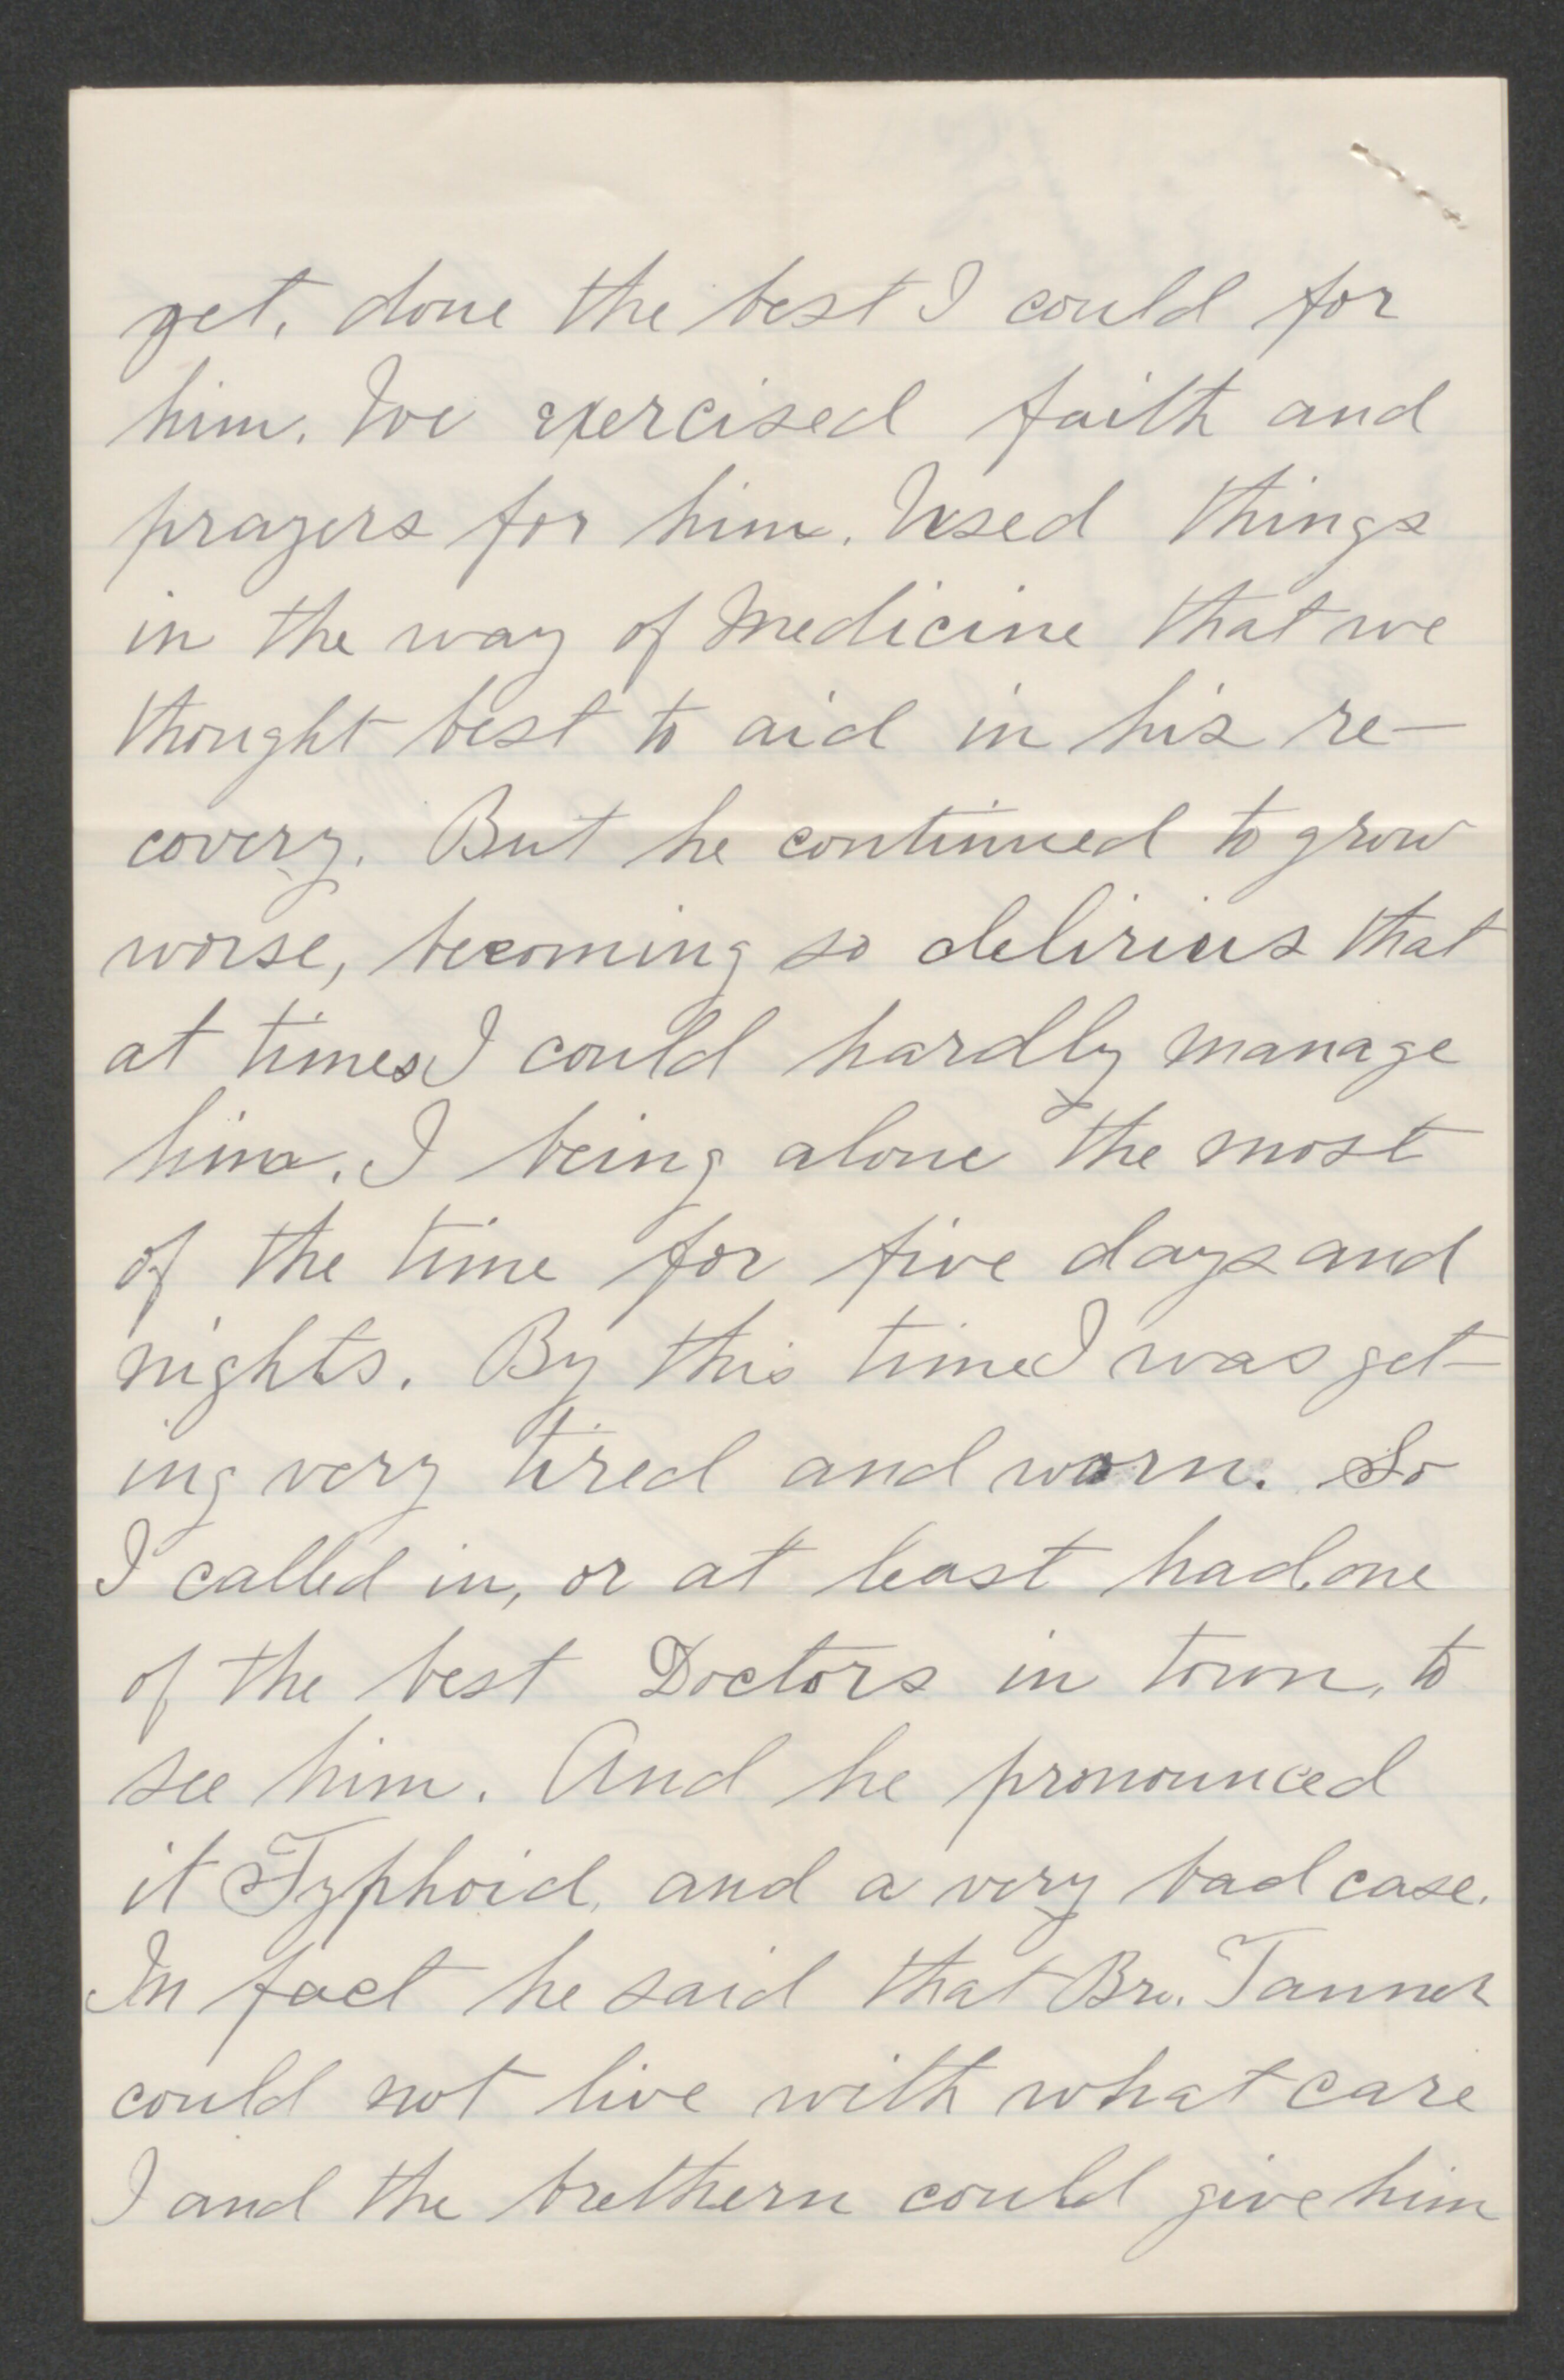 yet, done the best I could for
him. We exercised faith and
prayers for him. Used things
in the way of Medicine that we
thought best to aid in his re-
covery. But he continued to grow
worse, becoming so delirius that
at times I could hardly manage
him. I being alone the most
of the time for five days and
nights. By this time I was get-
ing very tired and worn. So
I called in, or at least had, one
of the best Doctors in town, to
see him. And he pronounced
it Typhoid, and a very bad case.
In fact he said that Bro. Tanner
could not live with what care
I and the brethern could give him